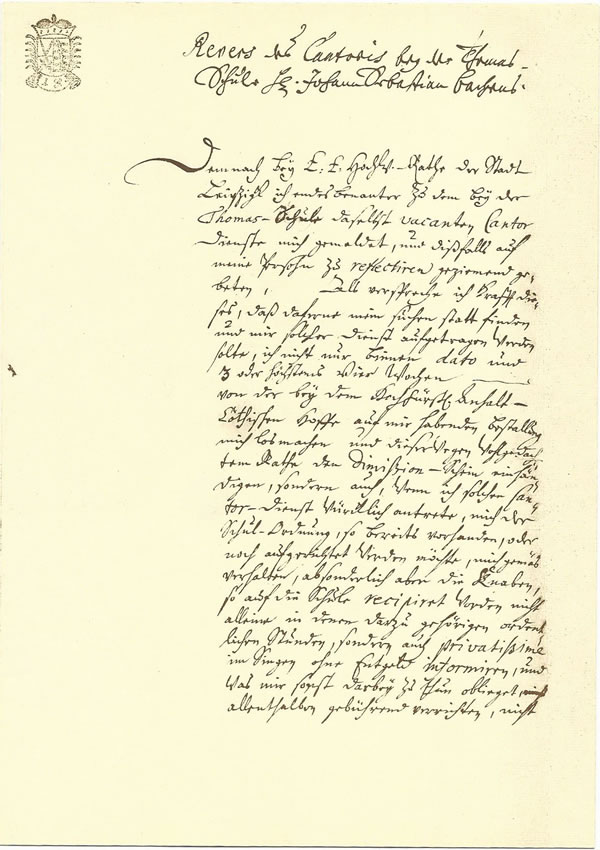 Revers des Cantoris bey der Thomas-
Schule H. Johann Sebastian Bachens.
Demnach bey E. E. Hochw. Rathe der Stadt
Leipzigk ich endesbenanter zu dem bey der
Thomas-Schule daselbst vacanten Cantor
Dienste mich gemeldet, und dißfalls auf
meine Persohn zu reflectiren geziemend ge-
beten, Als verspreche ich Krafft die-
ses, daß daferne mein suchen statt finden
und mir solcher Dienst aufgetragen werden
solte, ich nicht nur binnen dato und
3 oder höchstens vier Wochen
von der bey dem Hochfürstl. Anhalt-
Cöthischen Hoffe auf mir habenden Bestallung
mich losmachen und dieserwegen wohlgedach-
tem Rathe den Dimission-Schein einhän-
digen, sondern auch, wenn ich solchen Can-
tor-Dienst würcklich antrete, mich der
Schul-Ordnung, so bereits vorhanden, oder
noch aufgerichtet werden möchte, mich gemäs
verhalten, absonderlich aber die Knaben,
so auf die Schule recipiret worden nicht
alleine in denen darzu gehörigen ordent-
lichen Stunden, sondern auch privatissime
im Singen ohne Entgeld informiren, und
was mir sonst darbey zu thun oblieget,
allenthalben gebührend verrichten, nicht